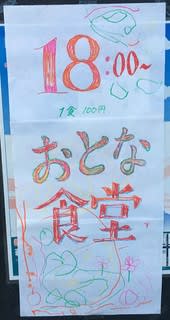 18:00~
1食 100円
おとな
食堂